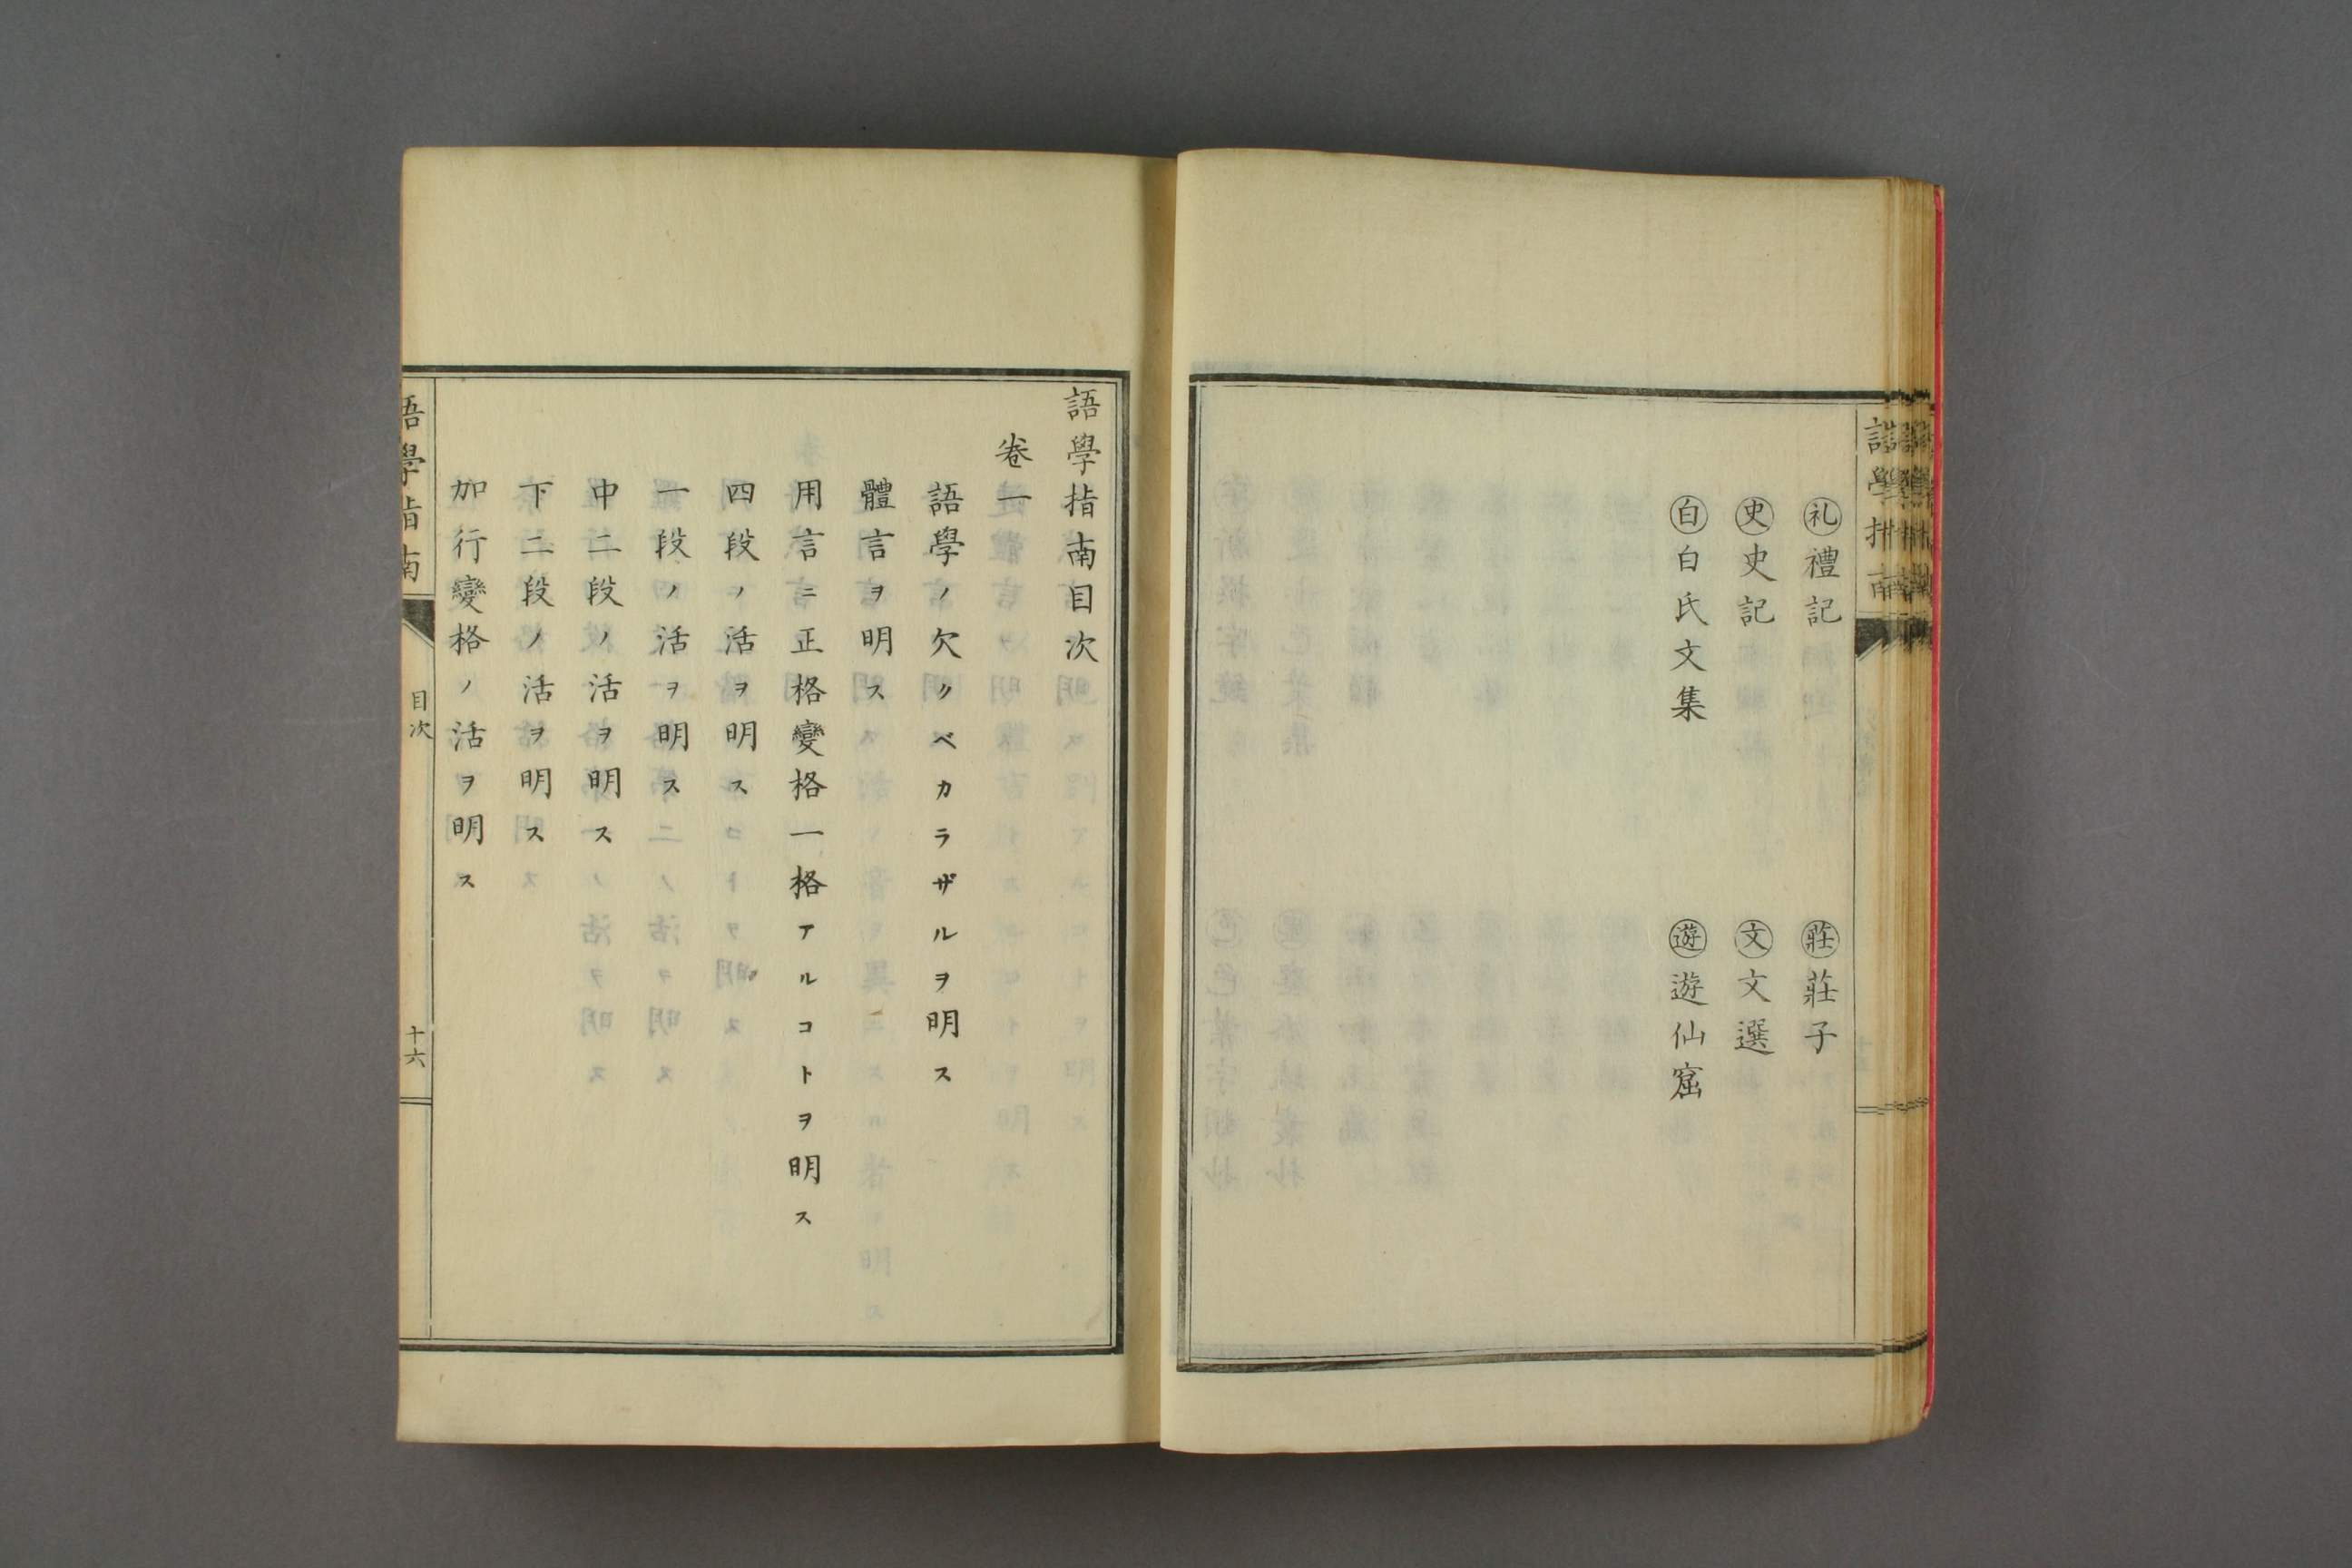 ㊑禮記 莊莊子
史史記 文文選
白白氏文集 遊遊仙窟
語學指南目次
卷一
語學ノ欠クベカラザルヲ明ス
體言ヲ明ス
用言ニ正格變格一格アルコトヲ明ス
四段ノ活ヲ明ス
一段ノ活ヲ明ス
中二段ノ活ヲ明ス
下二段ノ活ヲ明ス
加行變格ノ活ヲ明ス
語學指南 目次 十六